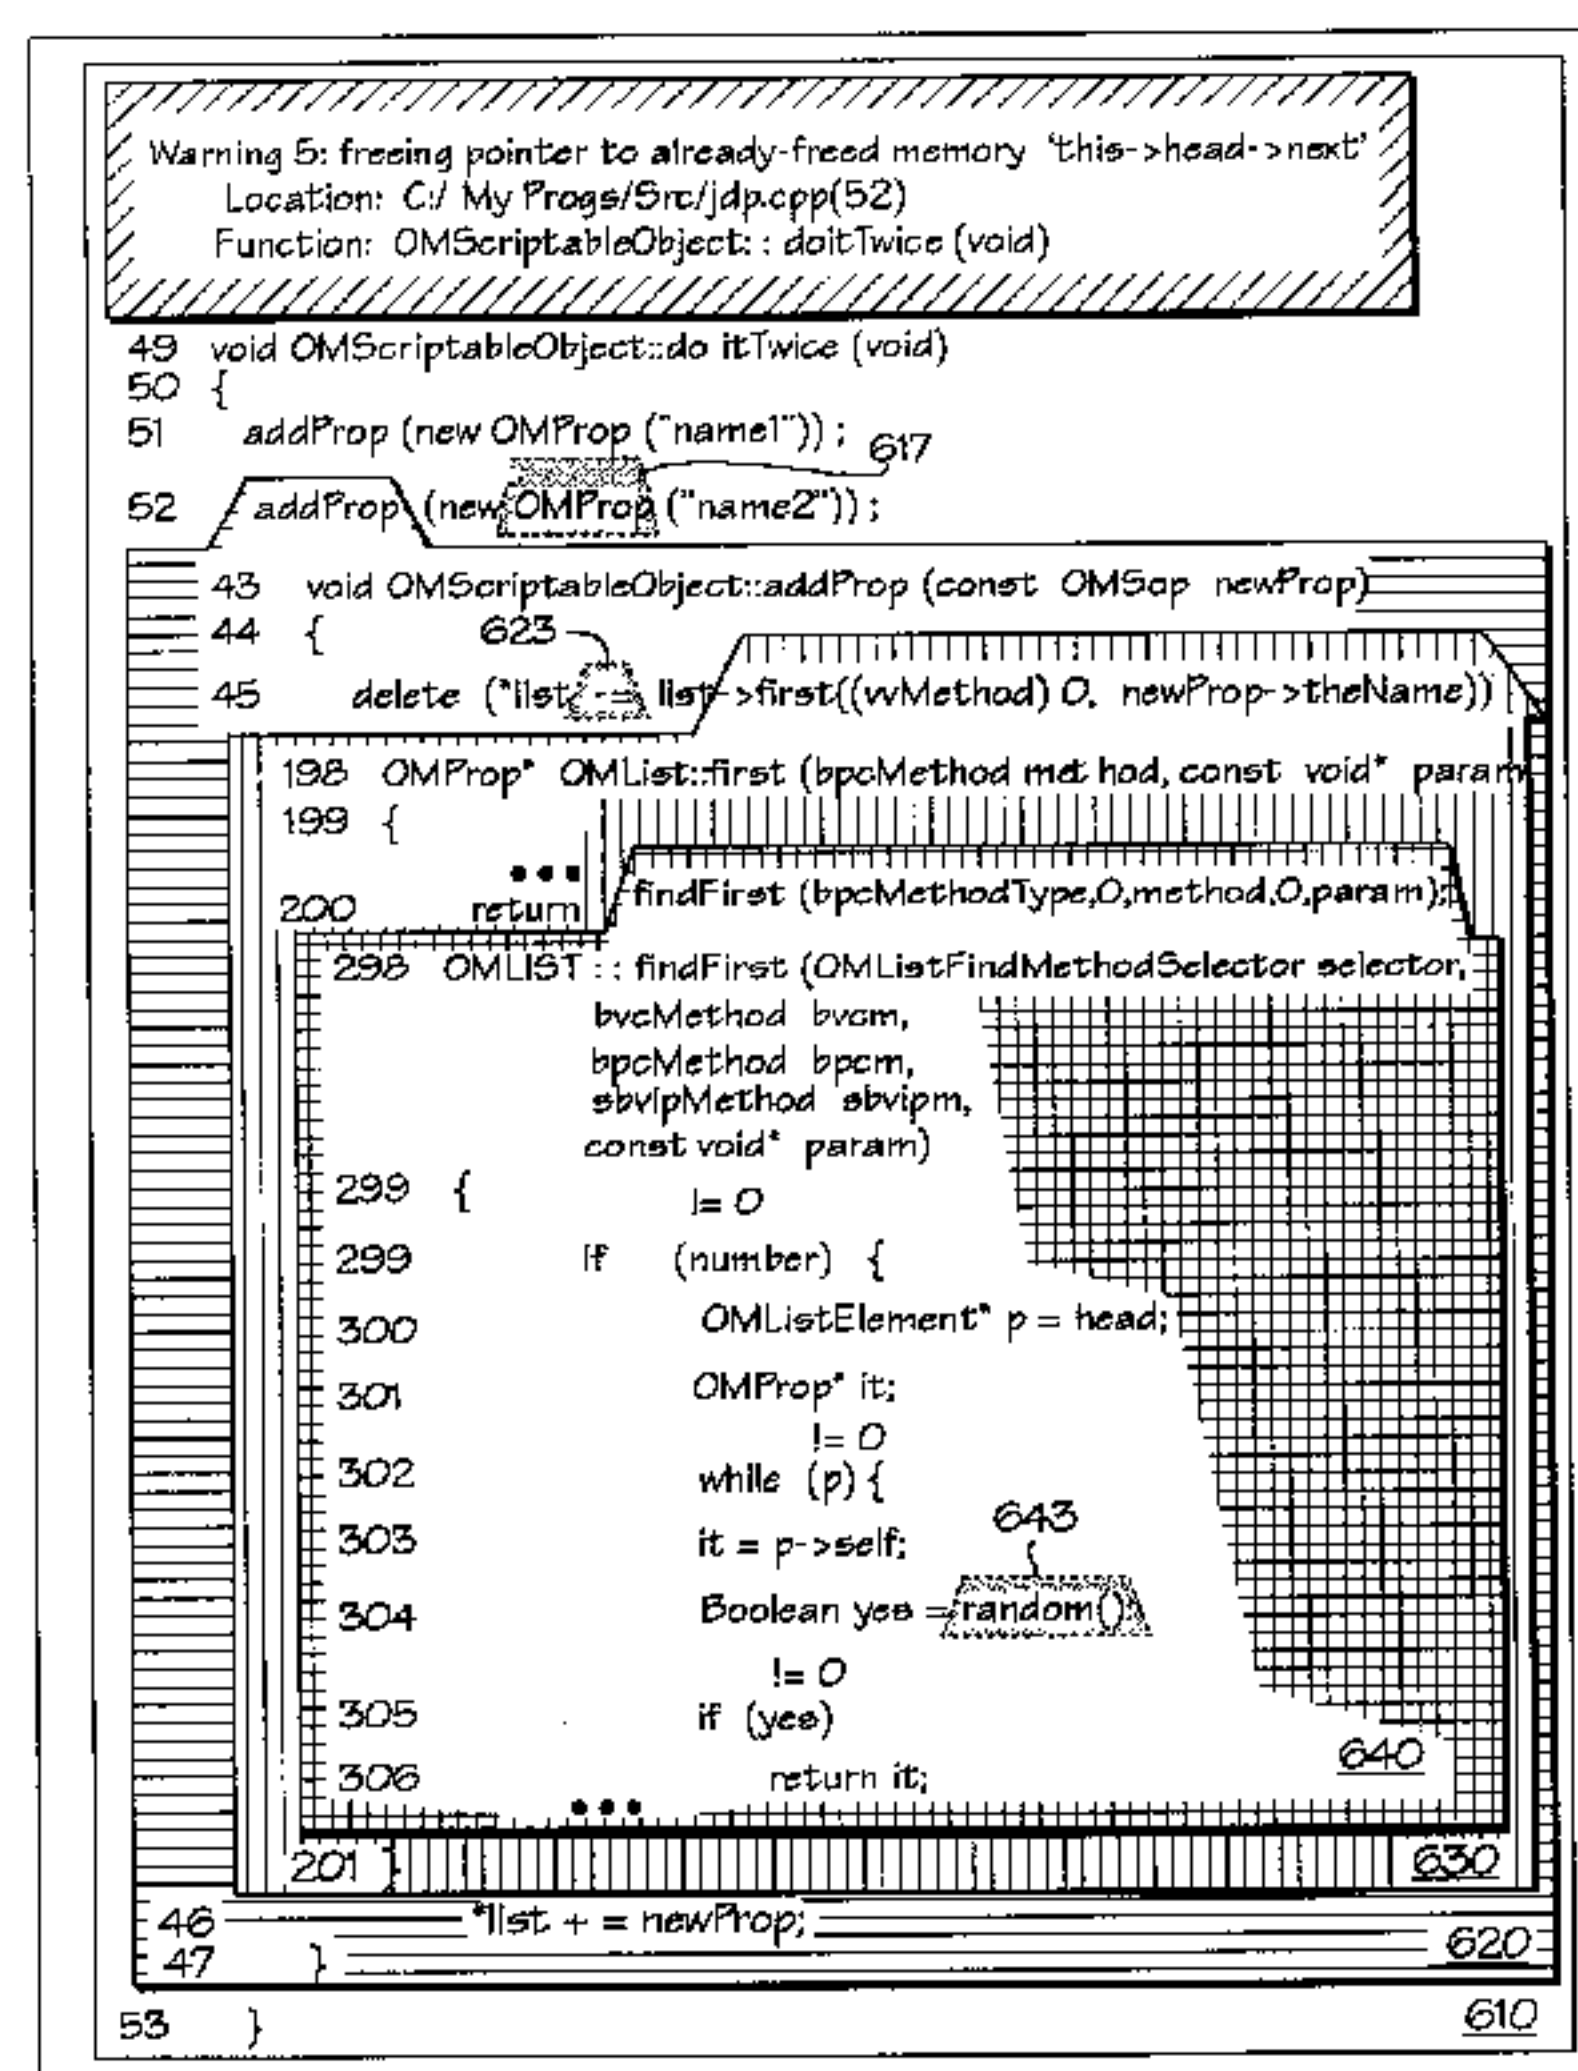 Warning 5: freeing pointer to already-freed memory 'this->head->next'
Location: C:/ My Progs/Src/jdp.cpp(52)
Function: OMScriptableObject: : doitTwice (void)
49 void OMScriptableObject::do itTwice (void)
50 {
51 addProp (new OMProp ("name1")) ;
617
52 addProp (new OMProp ("name2")) ;
43 void OMScriptableObject::addProp (const OMSop newProp)
44 { 623
45 delete (*list -= list->first((vvMethod) 0, newProp->theName))
198 OMProp* OMList::first (bpcMethod met hod, const void* param
199 {
•••
200 return findFirst (bpcMethodType,0,method,0,param);
298 OMLIST : : findFirst (OMListFindMethodSelector selector,
bvcMethod bvcm,
bpcMethod bpcm,
sbvipMethod sbvipm,
const void* param)
299 { != 0
299 if (number) {
300 OMListElement* p = head;
301 OMProp* it;
!= 0
302 while (p) {
643
303 it = p->self;
304 Boolean yes = random();
!= 0
305 if (yes)
640
306 return it;
•••
201 } 630
46 *list + = newProp;
620
47 }
53 } 610